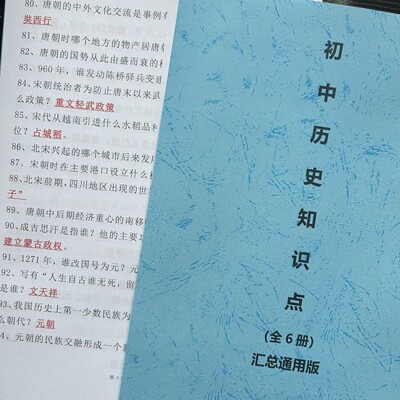 80、唐朝的中外文化交流是事例有
奘西行
81、唐朝时哪个地方的物产居唐朝
82、唐朝的国势从此由盛而衰的
83、960年，谁发动陈桥驿兵变
84、宋朝统治者为防止唐末以来武
么政策？重文轻武政策
85、宋代从越南引进什么水稻品种
位？占城稻。
86、北宋兴起的哪个城市后来发展
87、宋朝时在主要港口设立什么机
88、北宋前期，四川地区出现的世
子”
89、唐朝中后期经济重心的南移
90、成吉思汗是指谁？他的主要功
建立蒙古政权。
91、1271年，谁改国号为元？元
92、写有“人生自古谁无死，留
是谁？文天祥
93、我国历史上第一少数民族为
么朝代？元朝
94、元朝的民族交融形成一个新
初中历史知识点
(全6册)
汇总通用版